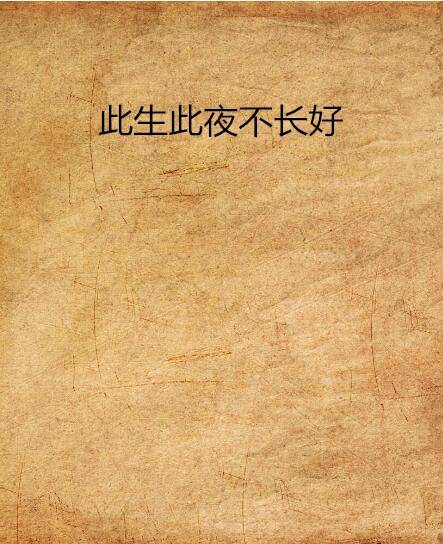 此生此夜不长好